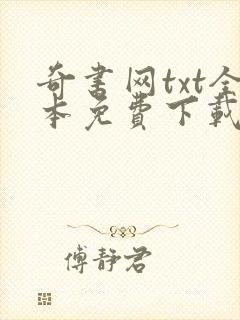 奇书网txt全
本免费下载
傅静君